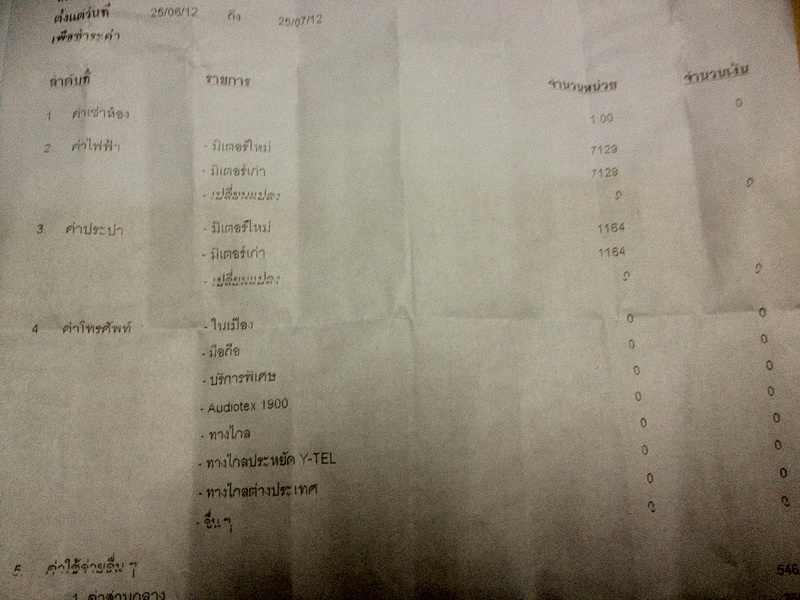 ตั้งแต่วันที่ 25/06/12 ถึง 25/07/12
เพื่อชำระค่า
ลำดับที่ รายการ จำนวนหน่วย จำนวนเงิน
1 ค่าเช่าห้อง 1.00 0
2 ค่าไฟฟ้า - มิเตอร์ใหม่ 7129
- มิเตอร์เก่า 7129
- เปลี่ยนแปลง 0 0
3 ค่าประปา - มิเตอร์ใหม่ 1164
- มิเตอร์เก่า 1164
- เปลี่ยนแปลง 0 0
4 ค่าโทรศัพท์ - ในเมือง 0 0
- มือถือ 0 0
- บริการพิเศษ 0 0
- Audiotex 1900 0 0
- ทางไกล 0 0
- ทางไกลประหยัด Y-TEL 0 0
- ทางไกลต่างประเทศ 0 0
- อื่นๆ 0 0
5. ค่าใช้จ่ายอื่น ๆ 546
1. ค่าส่วนกลาง